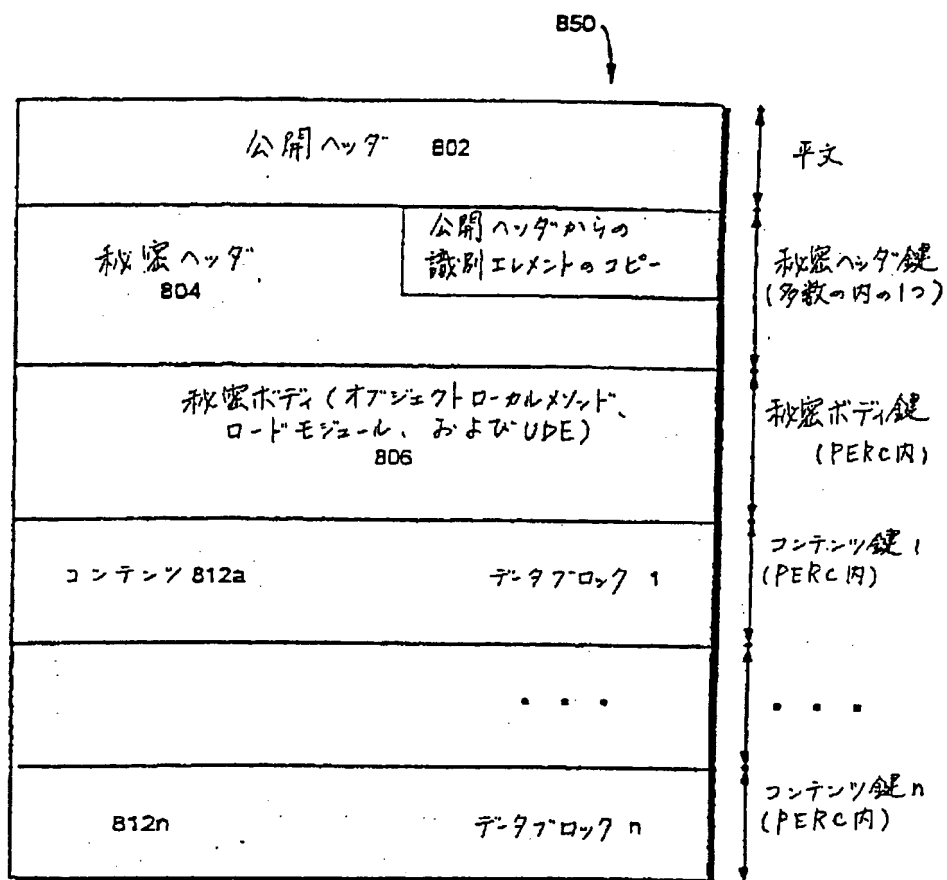 850
公開ヘッダ 802
平文
秘密ヘッダ
804
公開ヘッダからの
識別エレメントのコピー
秘密ヘッダ鍵
(多数の内の1つ)
秘密ボディ(オブジェクトローカルメソッド、
ロードモジュール、およびUDE)
806
秘密ボディ鍵
(PERC内)
コンテンツ 812a データブロック 1
コンテンツ鍵 1
(PERC内)
・・・
・・・
812n データブロック n
コンテンツ鍵 n
(PERC内)